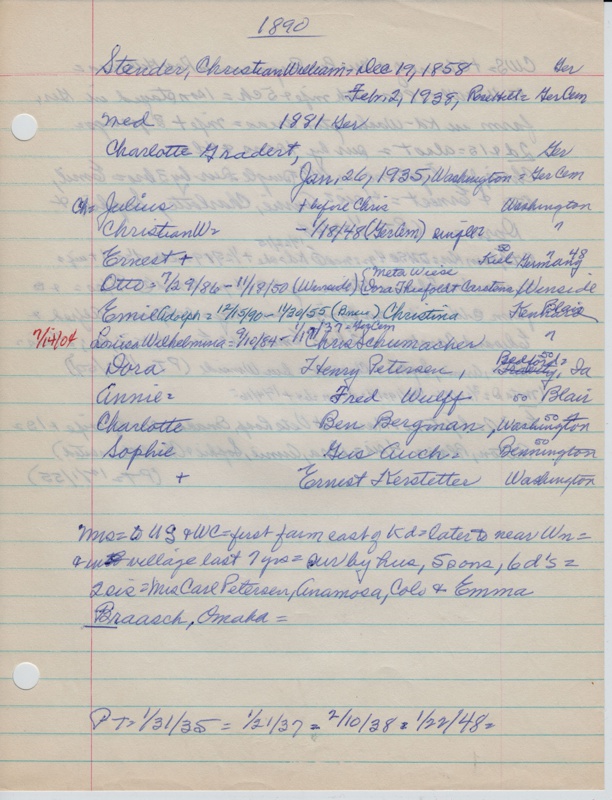 1890
Stender, Christian William + Dec 19, 1858 Ger
Feb. 2, 1938, Ger Cem
Med 1881 Ger
Charlotte Gradert, Ger
Jan, 26, 1935, Washington = Ger Cem
Ch = Julius + before Chris Washington
Christian W = - 1/18/48 (Ger Cem) single ?
Ernest + Kiel Germany 50 ? 48
Otto = 7/29/86 - 11/18/50 (Winside) { Meta Wiese
Ora Carstens, Winside
Emil Adolph = 12/15/90 - 11/30/55 (Benn) Christina Blair
7/14/04 Louisa Wilhelmina = 9/10/84 - 1/19/37 = Ger Cem Chris Schumacher ?
Dora Henry Petersen, Bedford, Ia 50 =
Annie = Fred Wulff 50 Blair
Charlotte Ben Bergman, Washington 50
Sophie Gus Auch = Bennington 50
+ Ernest Kerstetter Washington
Mrs = to US & WC = first farm east of Kd = later to near Wn =
& in village last 7 yrs = sur by hus, 5 sons, 6 d's =
2 sis = Mrs Carl Petersen, Anamosa, Colo & Emma
Braasch, Omaha =
PT = 1/31/35 = 1/21/37 = 2/10/38 = 1/22/48 =